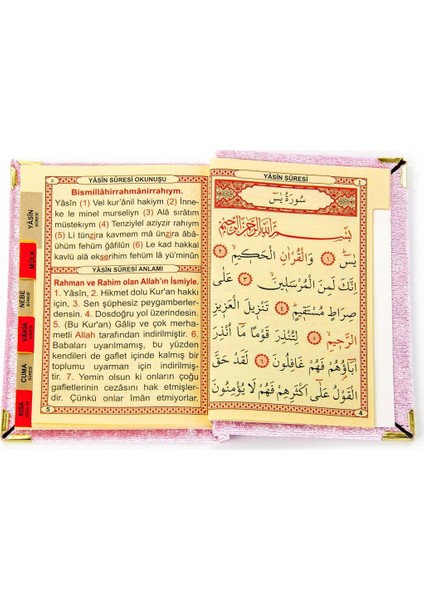 YÂSİN SÛRESİ OKUNUŞU
Bismillâhirrahmânirrahıym.
Yâsîn (1) Vel kur'ânil hakiym (2) İnne-
ke le minel murseliyn (3) Alâ sırâtım
müstekıym (4) Tenziylel aziyzir rahıym
(5) Li tünzira kavmem mâ ünzira âbâ-
ühüm fehüm ğâfilûn (6) Le kad hakkal
kavlü alâ ekserihim fehüm lâ yü'minûn
YÂSİN SÛRESİ ANLAMI
Rahman ve Rahim olan Allah'ın İsmiyle.
1. Yâsîn, 2. Hikmet dolu Kur'an hakkı
için, 3. Sen şüphesiz peygamberler-
densin. 4. Dosdoğru yol üzerindesin.
5. (Bu Kur'an) Gâlip ve çok merha-
metli Allah tarafından indirilmiştir. 6.
Babaları uyarılmamış, bu yüzden
kendileri de gaflet içinde kalmış bir
toplumu uyarman için indirilmiş-
tir. 7. Yemin olsun ki onların çoğu
gafletlerinin cezasını hak etmişler-
dir. Çünkü onlar îman etmiyorlar.
5
YÂSİN
MÜLK
NEBE
VÂKIA
CUMA
KISA
YÂSİN SÛRESİ
1
سُورَةُ يٰسٓ
بِسْمِ اللّٰهِ الرَّحْمٰنِ الرَّحِيمِ
يٰسٓ ﴿١﴾ وَالْقُرْاٰنِ الْحَكِيمِ ﴿٢﴾
اِنَّكَ لَمِنَ الْمُرْسَلِينَ ﴿٣﴾ عَلٰى
صِرَاطٍ مُسْتَقِيمٍ ﴿٤﴾ تَنْزِيلَ الْعَزِيزِ
الرَّحِيمِ ﴿٥﴾ لِتُنْذِرَ قَوْمًا مَٓا اُنْذِرَ
اٰبَٓاؤُ۬هُمْ فَهُمْ غَافِلُونَ ﴿٦﴾ لَقَدْ حَقَّ
الْقَوْلُ عَلٰٓى اَكْثَرِهِمْ فَهُمْ لَا يُؤْمِنُونَ
4